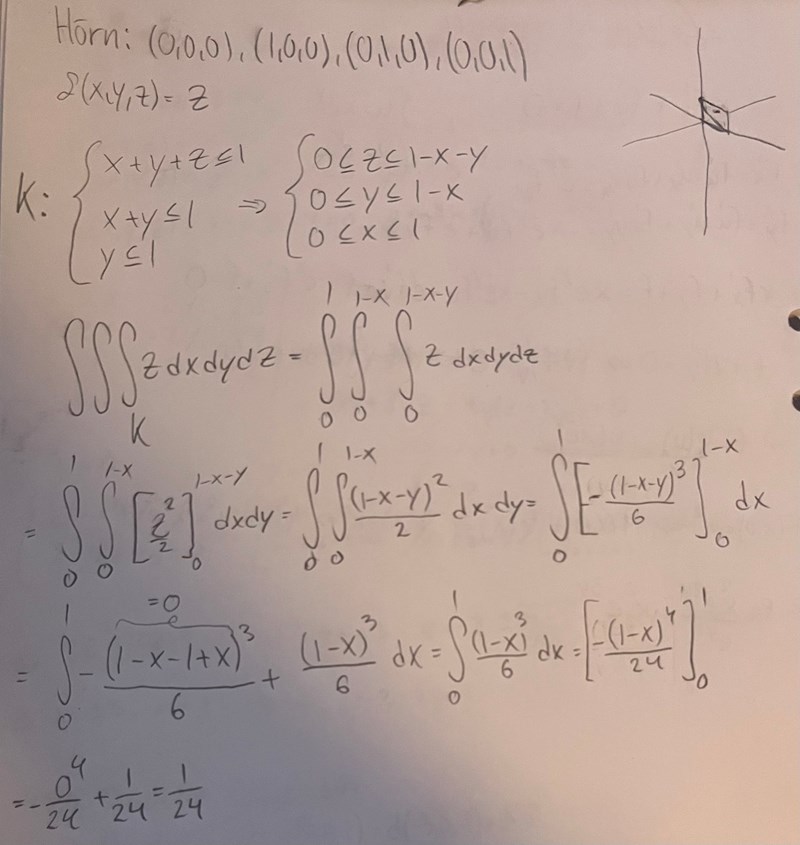 Hörn: (0,0,0), (1,0,0), (0,1,0), (0,0,1)
f(x,y,z) = z
K: { x+y+z ≤ 1, x+y ≤ 1, y ≤ 1 ⇒ { 0 ≤ z ≤ 1-x-y, 0 ≤ y ≤ 1-x, 0 ≤ x ≤ 1
∫∫∫_K z dxdydz = ∫_0^1 ∫_0^{1-x} ∫_0^{1-x-y} z dxdydz
= ∫_0^1 ∫_0^{1-x} [z^2/2]_0^{1-x-y} dxdy = ∫_0^1 ∫_0^{1-x} (1-x-y)^2/2 dx dy = ∫_0^1 [-(1-x-y)^3/6]_0^{1-x} dx
=0
= ∫_0^1 -(1-x-1+x)^3/6 + (1-x)^3/6 dx = ∫_0^1 (1-x)^3/6 dx = [-(1-x)^4/24]_0^1
= -0^4/24 + 1/24 = 1/24